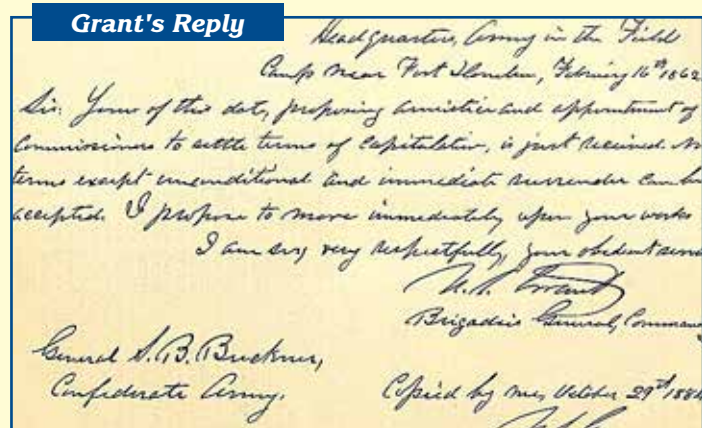 Grant's Reply
Headquarters, Army in the Field
Camp near Fort Donelson, February 16th 1862
Sir: Yours of this date, proposing armistice and appointment of
Commissioners to settle terms of Capitulation, is just received. No
terms except unconditional and immediate surrender can be
accepted. I propose to move immediately upon your works
I am sir, very respectfully, your obedient
U. S. Grant
Brigadier General,
General S. B. Buckner,
Confederate Army.
Copied by me, October 29th